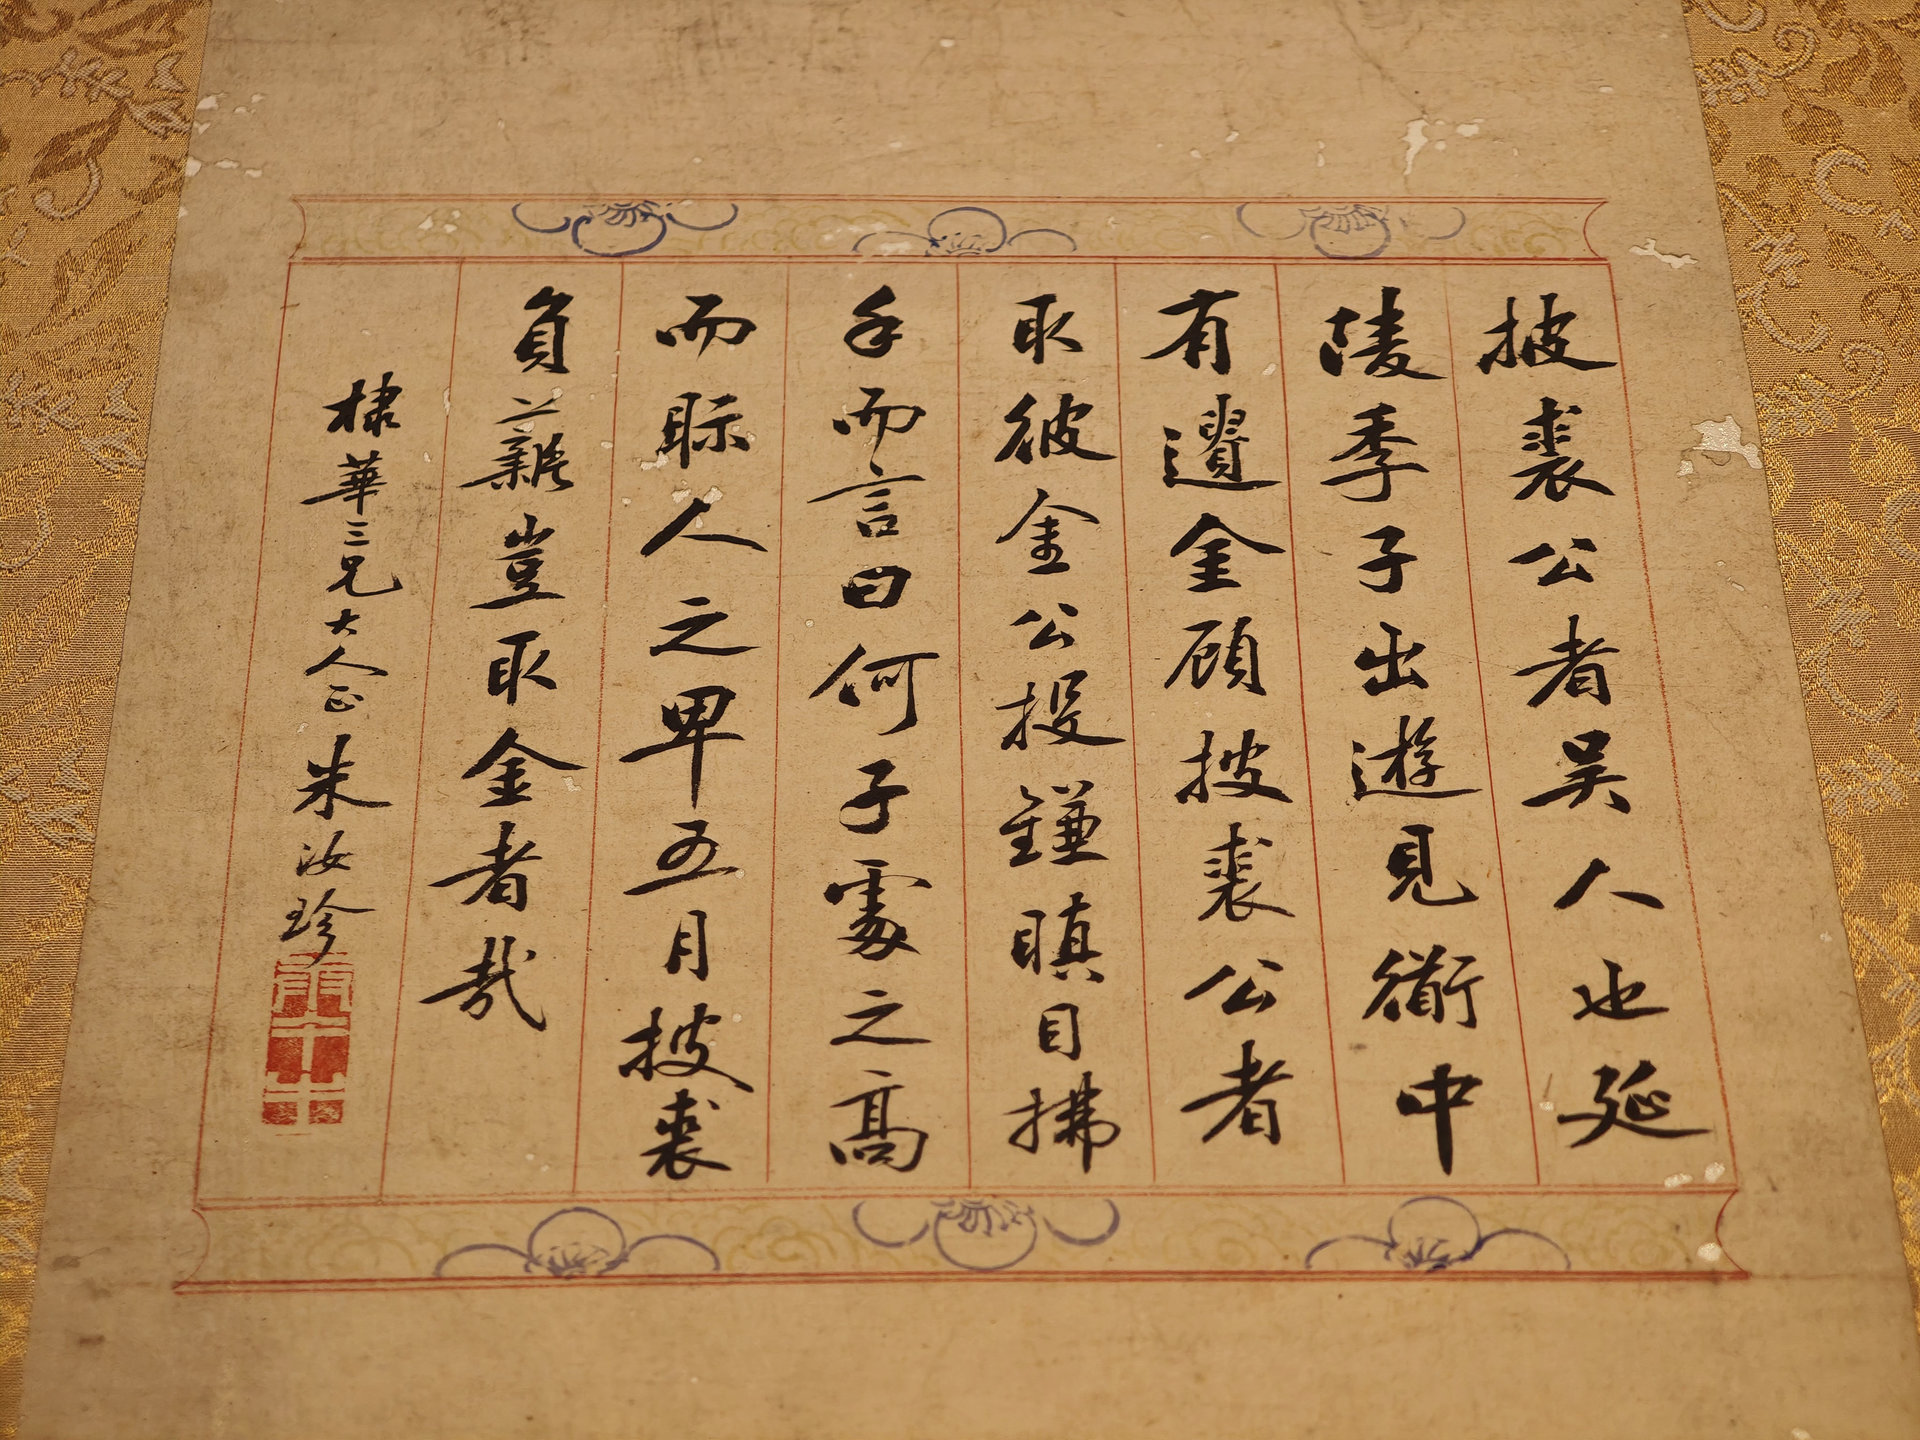 披裘公者吴人也延
陵季子出遊見衟中
有遺金顧披裘公者
取彼金公投鎌瞋目拂
手而言曰何子處之高
而眎人之卑五月披裘
負薪豈取金者哉
棣華三兄大人正 朱汝珍